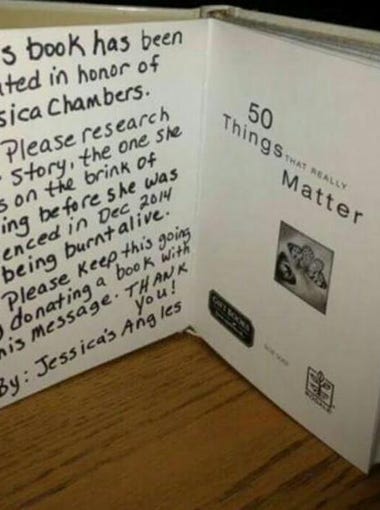 s book has been
ated in honor of
sica Chambers.
Please research
story, the one she
s on the brink of
ing before she was
enced in Dec 2014
being burnt alive.
Please keep this going
donating a book with
his message. THANK
YOU!
By: Jessica's Angles
50
Things THAT REALLY
Matter
GIFT BOOKS